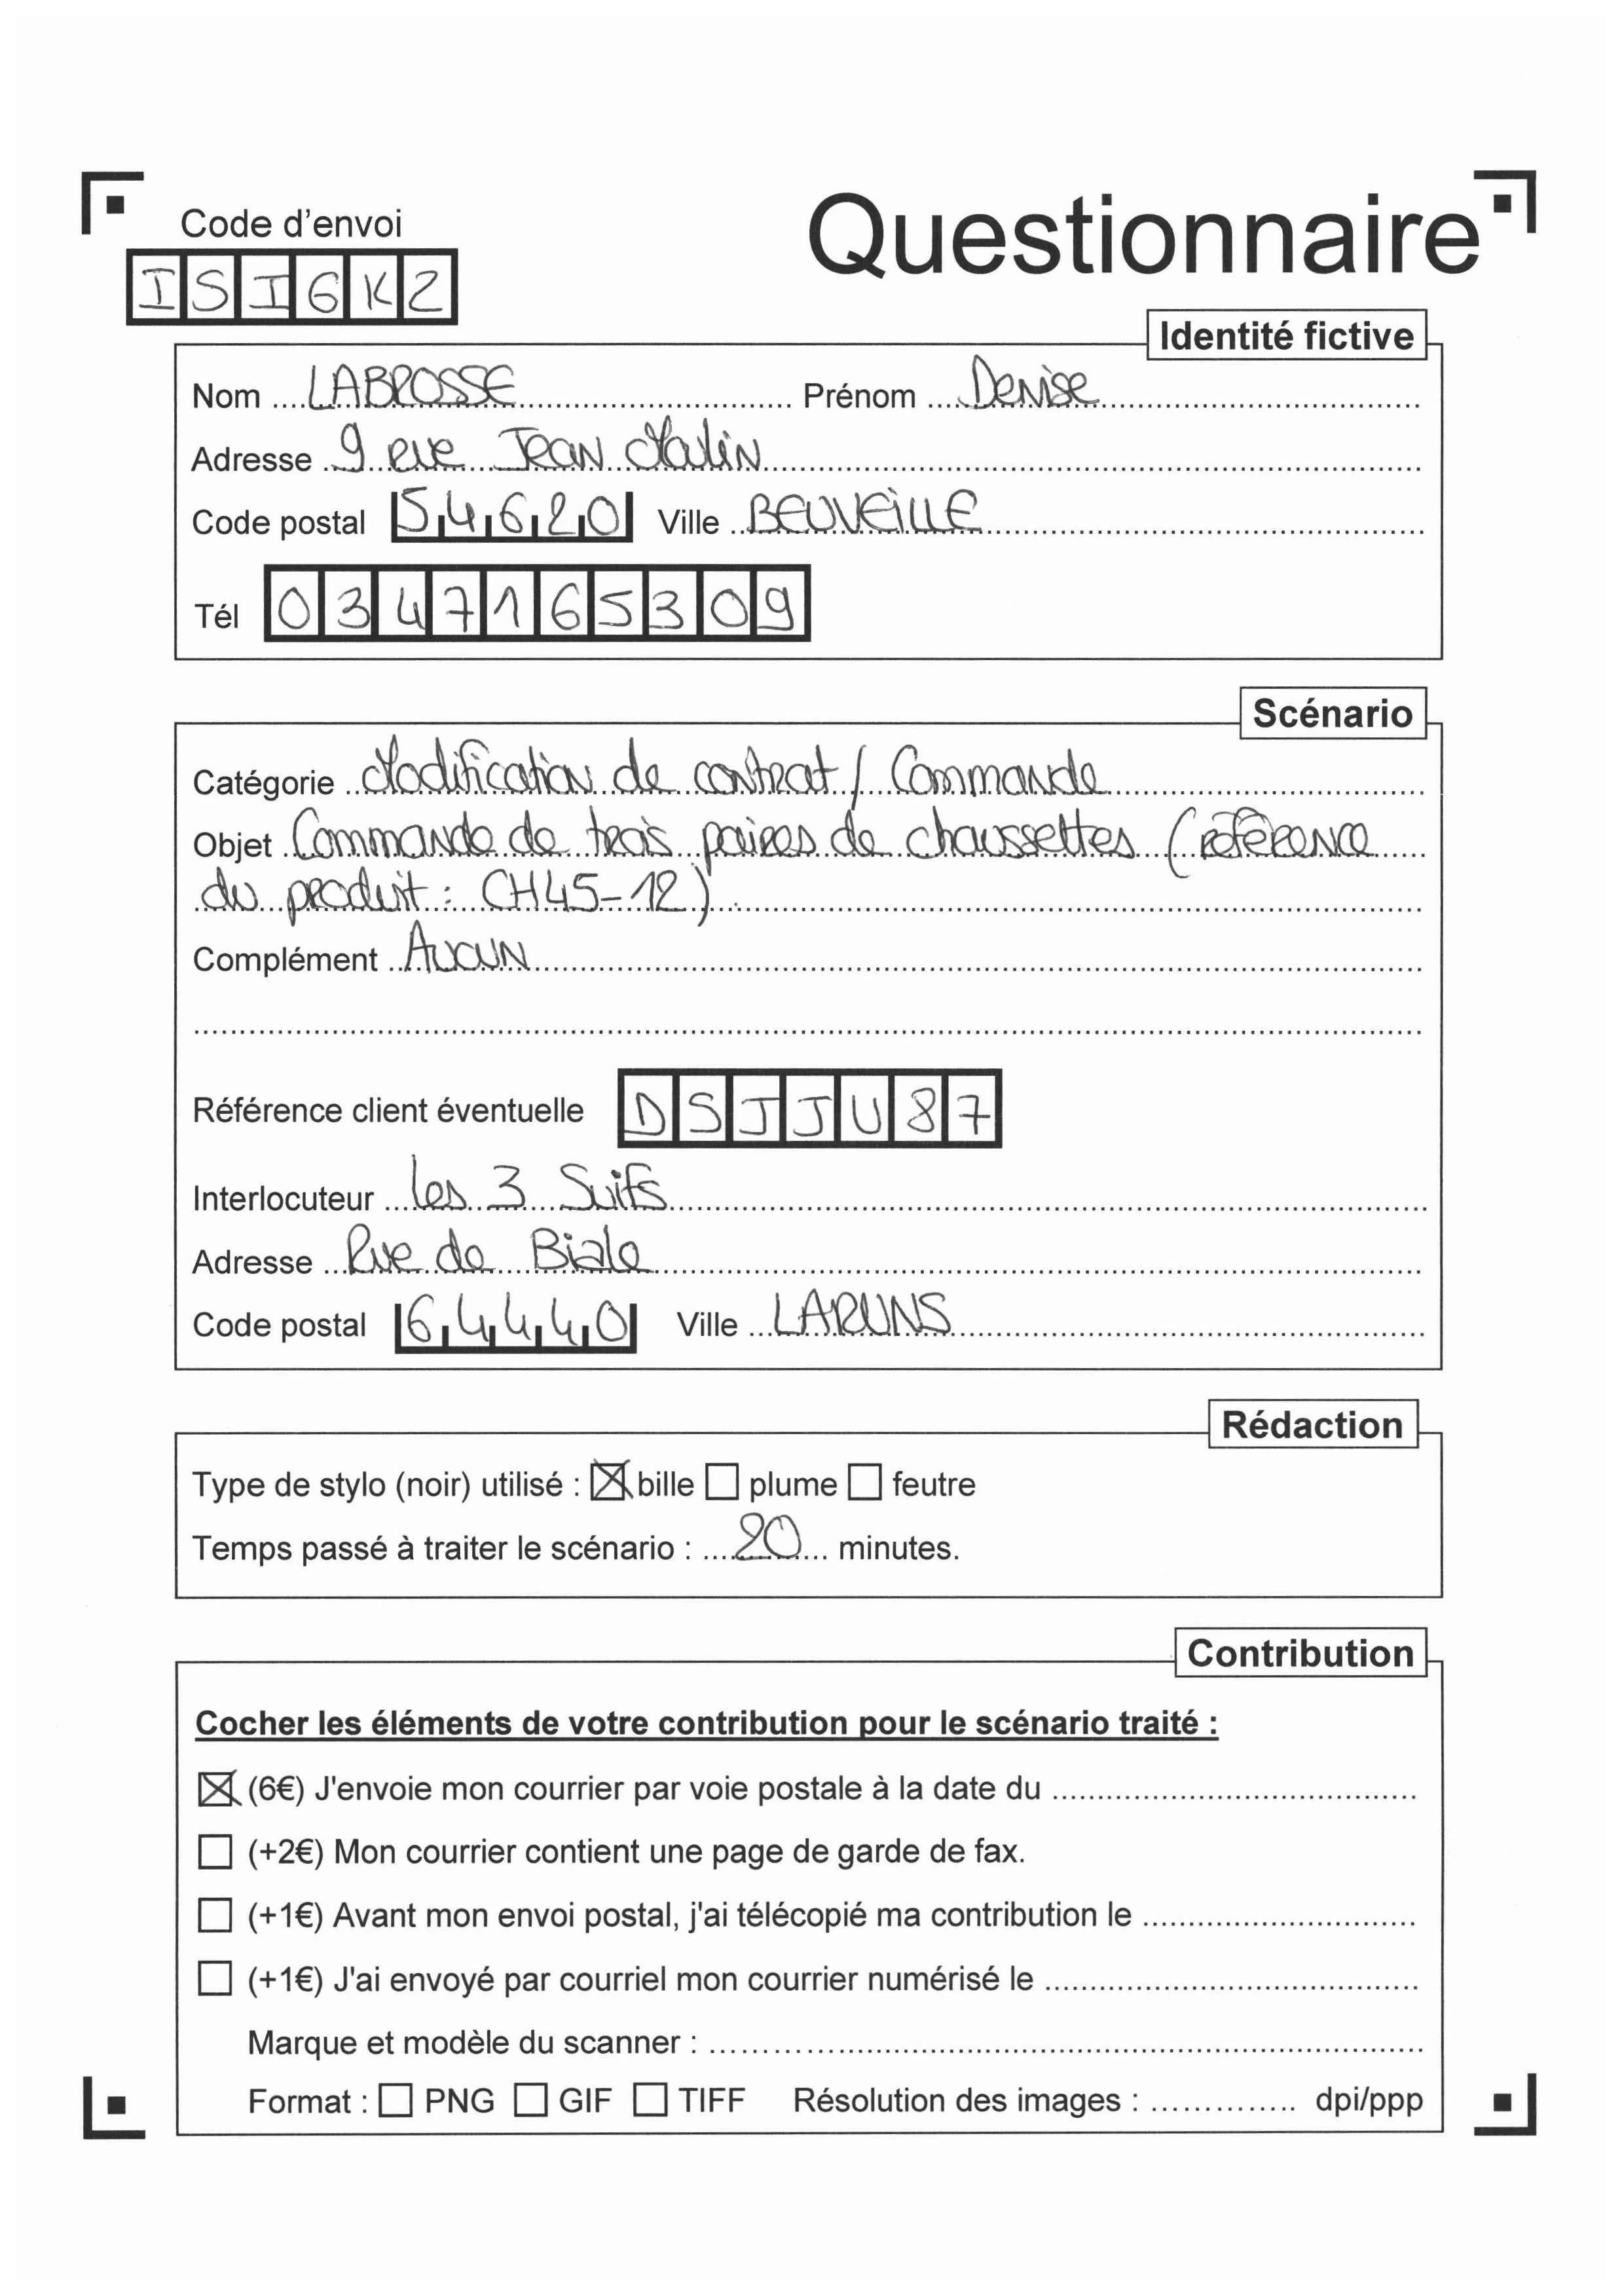 Code d'envoi
Questionnaire
ISIGK2
Identité fictive
Nom LABROSSE Prénom Denise
Adresse 9 rue Jean Moulin
Code postal 54620 Ville BEUVEILLE
Tél 0347165309
Scénario
Catégorie Modification de contrat / Commande
Objet Commande de trois paires de chaussettes (référence
du produit : CH45-12).
Complément Aucun
Référence client éventuelle DSJJU87
Interlocuteur Les 3 Suifs
Adresse Rue de Biale
Code postal 64440 Ville LARUNS
Rédaction
Type de stylo (noir) utilisé : ☒ bille ☐ plume ☐ feutre
Temps passé à traiter le scénario : 20 minutes.
Contribution
Cocher les éléments de votre contribution pour le scénario traité :
☒ (6€) J'envoie mon courrier par voie postale à la date du
☐ (+2€) Mon courrier contient une page de garde de fax.
☐ (+1€) Avant mon envoi postal, j'ai télécopié ma contribution le
☐ (+1€) J'ai envoyé par courriel mon courrier numérisé le
Marque et modèle du scanner :
Format : ☐ PNG ☐ GIF ☐ TIFF Résolution des images : dpi/ppp